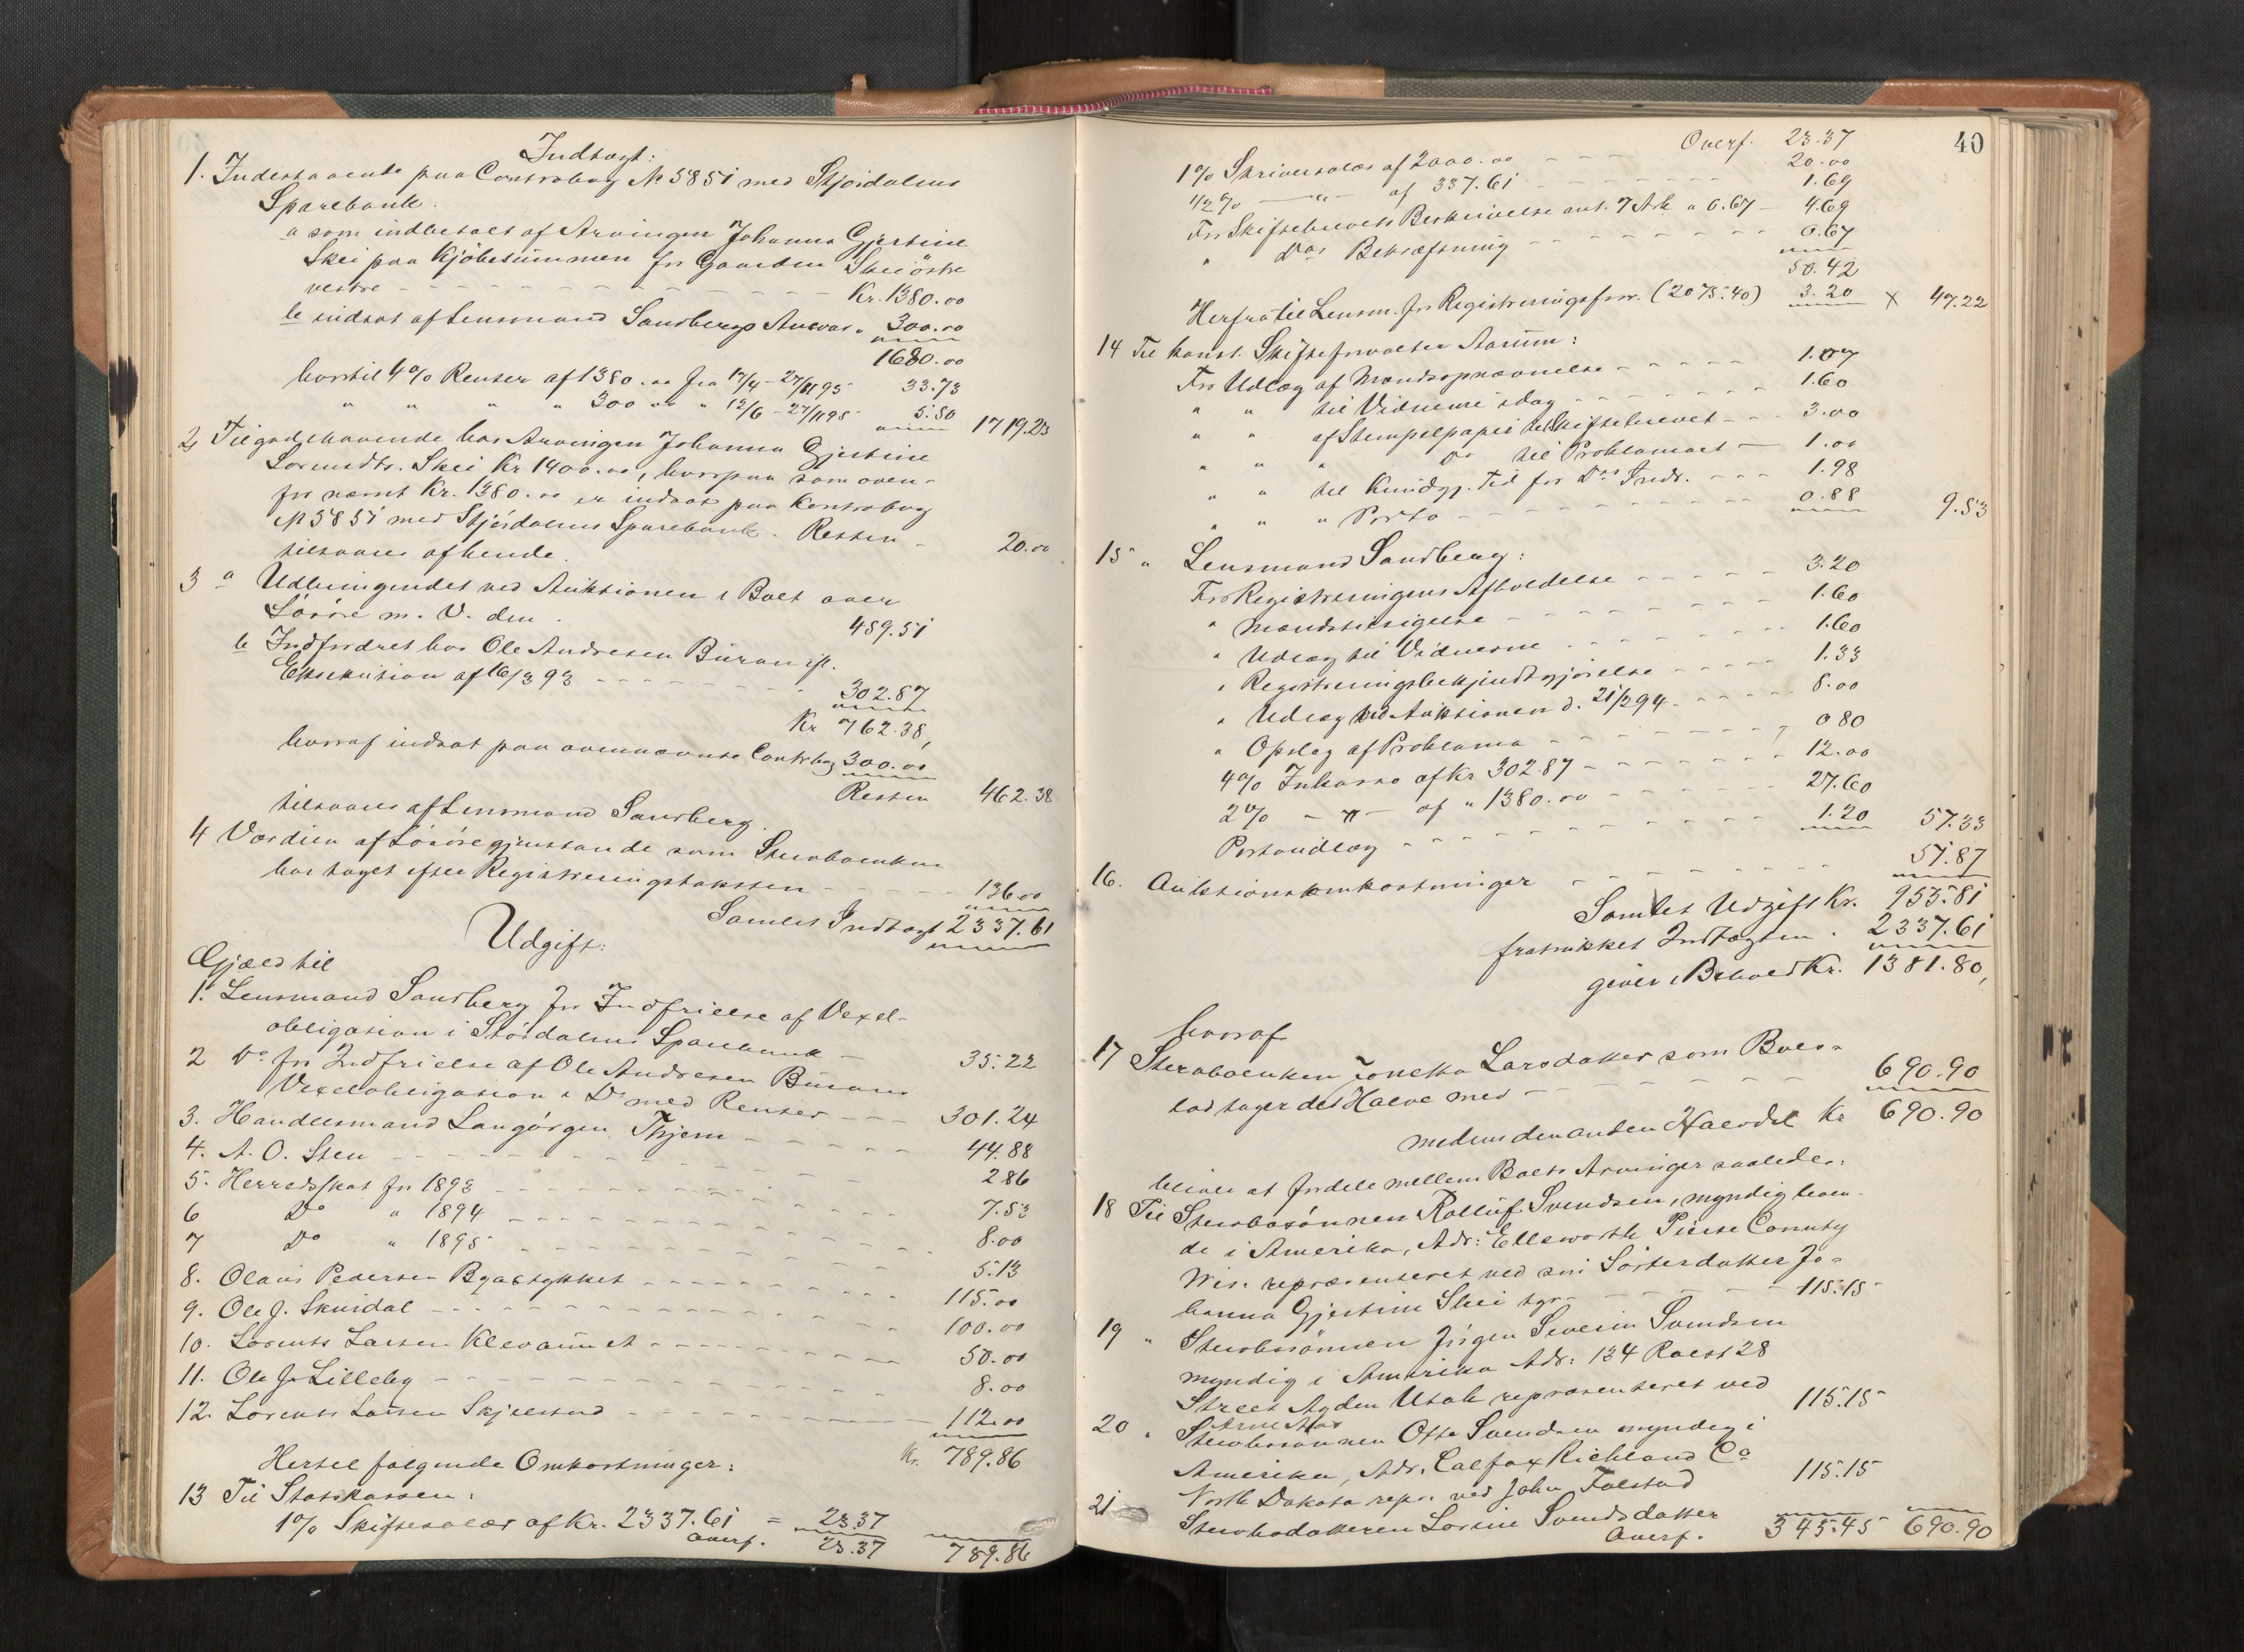 Indtægt:
1. Indestaaende paa Contrabog № 5851 med Stjørdalens
Sparebank:
a som indbetalt af Arvingen Johanna Gjertine
Skei paa Kjöbesummen for Gaarden Skei östre
vestre - - - Kr. 1380.00
b indsat af Lensmand Sandbergs Ansvar " 300.00
1680.00
hvortil 4% Renter af 1380.00 fra 17/4 - 27/11 95 33.73
" " " " 300.00 " 12/6 - 27/11 95 5.50 1719.23
2, Tilgodehavende hos Arvingen Johanna Gjertine
Lorentsdtr. Skei Kr 1400.00, hvorpaa som oven-
for nævnt Kr. 1380.00 er indsat paa Kontrabog
№ 5851 med Stjördalens Sparebank. Resten - 20.00
tilsvares af hende.
3 a Udbringendet ved Auktionen i Boet over
Lösöre m. V. den 459.51
b Indfordret hos Ole Andresen Buran ifl.
Eksekution af 16/3 93 - - - 302.87
Kr 762.38,
hvoraf indsat paa ovennævnte Contrbog 300.00
Resten 462.38
tilsvares af Lensmand Sandberg.
4 Værdien af Lösöregjenstande som Sterboenken
har taget efter Registreringstaksten - - - 136.00
Samlet Indtægt 2337.61
Udgift:
Gjæld til
1. Lensmand Sandberg for Indfrielse af Vexel-
obligation i Stördalens Sparebank - 35.22
2 Do for Indfrielse af Ole Andresen Burans
Vexelobligation i Do med Renter - - 301.24
3. Handelsmand Langörgen, Thjem - - - 44.88
4. A. O. Sten - - - 2.86
5. Herredsskat for 1893 - - - 7.53
6 Do " 1894 - - - 8.00
7 Do " 1895 - - - 5.13
8. Olaus Pedersen Byastykket - - - 115.00
9. Ole J. Skuidal - - - 100.00
10. Lorents Larsen Klevaunet - - - 50.00
11. Ole J. Lilleby - - - 8.00
12. Lorents Larsen Skjelstad - - - 112.00
Kr. 789.86
Hertil fölgende Omkostninger:
13 Til Statskassen:
1% Skiftesalær af Kr. 2337.61 = 23.37
Overf. 23.37 789.86
40
Overf. 23.37
1% Skriversalær af 2000.00 - - - 20.00
1/2% - " - af 337.61 - - - 1.69
For Skiftebrevets Beskrivelse ant. 7 Ark a 0.67 - 4.69
" Dos Bekræftning - - - 0.67
50.42
Herfra til Lensm. for Registreringsforr. (2075.40) 3.20 x 47.22
14 Til konst. Skifteforvalter Aarum:
For Udlæg af Mandsopnævnelse - - - 1.07
" " til Vidnerne idag - - - 1.60
" " af Stempelpapir til Skiftebrevet - - 3.00
" " " Do til Proklamaet - 1.00
" " til Kundgj. Tid for Dos Indr. - - - 1.98
" " " Porto - - - 0.88 9.53
15 " Lensmand Sandberg:
For Registreringens Afholdelse - - - 3.20
" Mandstilsigelse - - - 1.60
" Udlæg til Vidnerne - - - 1.60
" Registreringsbekjendtgjörelse - - - 1.33
" Udlæg ved Auktionen d. 21/2 94 - - - 8.00
" Opslag af Proklama - - - 0 80
4% Inkasso af Kr 302.87 - - - 12.00
2% - " - af " 1380.00 - - - 27.60
Portoudlæg - - - 1.20 57.33
16. Auktionsomkostninger - - - 51.87
Samlet Udgift Kr. 955.81
fratrukket Indtægten " 2337.61
giver i Behold Kr. 1381.80,
hvoraf
17 Sterboenken Jonetta Larsdatter som Boes-
lod tager det Halve med - - - 690.90
medens den anden Halvdel Kr 690.90
bliver at fordele mellem Boets Arvinger saaledes:
18 Til Sterbosönnen Rolluf Svendsen, myndig boen-
de i Amerika, Adr: Ellsworth Pierse Connty
Wis. repræsenteret ved sin Sösterdatter Jo-
hanna Gjertine Skei tgr - - - 115.15
19 " Sterbosönnen Jörgen Severin Svendsen
myndig i Amerika Adr: 134 Ræst 28
Street Agden Utah repræsenteret ved 115.15
Arne Aas
20 " Sterbosönnen Otto Svendsen myndig i
Amerika, Adr. Calfax Richland Co
North Dakota repr. ved John Folstad 115.15
21 Sterbodatteren Lorine Svendsdatter
Overf. 345.45 690.90